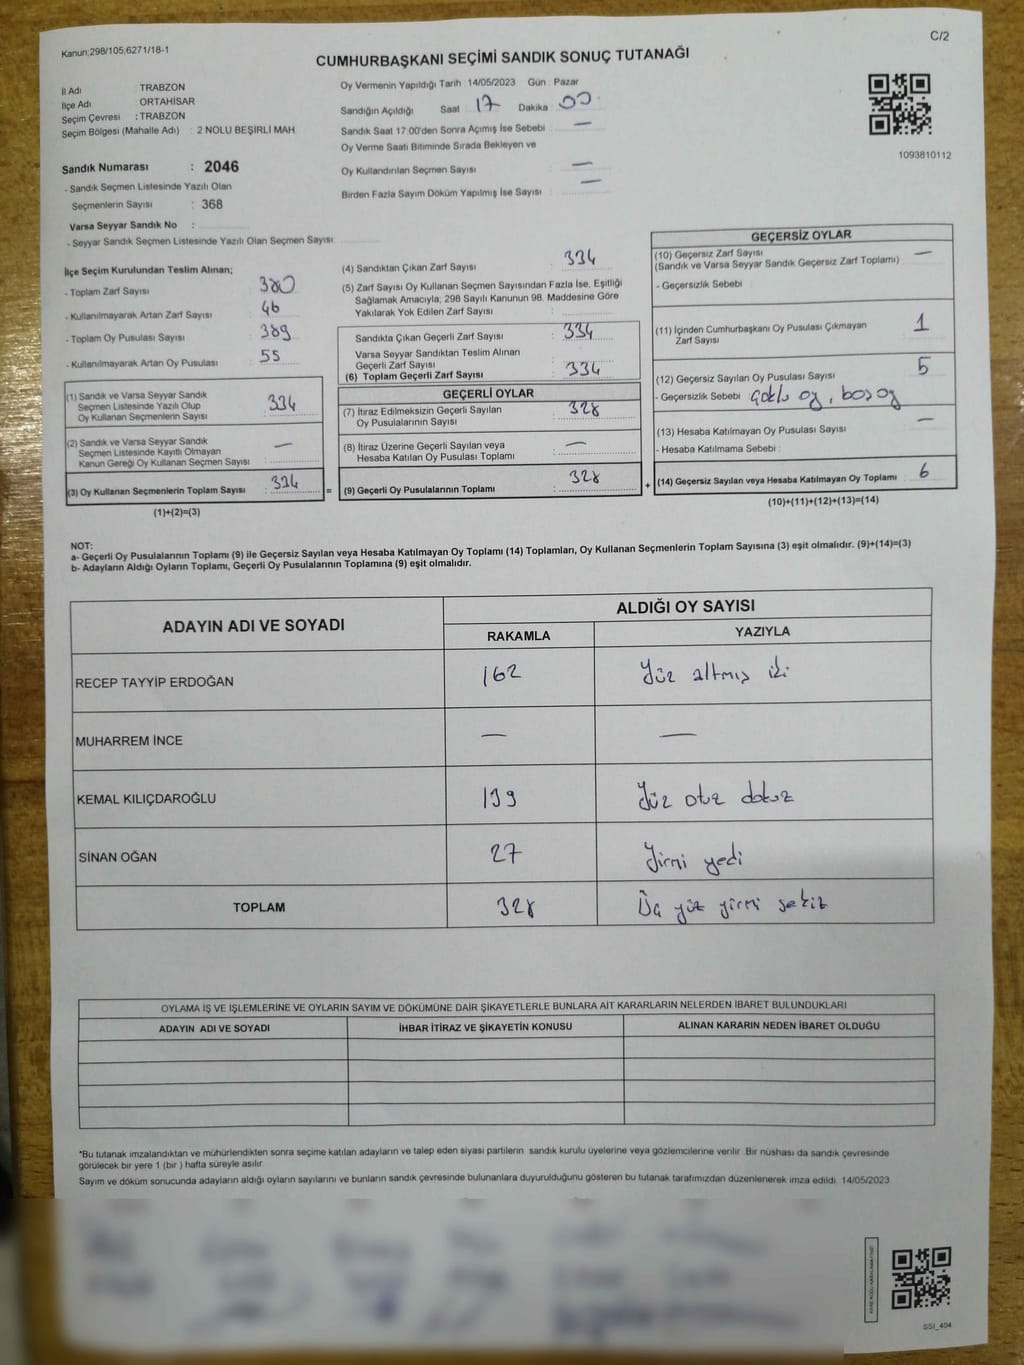 Kanun:298/105,6271/18-1
C/2
CUMHURBAŞKANI SEÇİMİ SANDIK SONUÇ TUTANAĞI
İl Adı TRABZON
İlçe Adı ORTAHİSAR
Seçim Çevresi : TRABZON
Seçim Bölgesi (Mahalle Adı) : 2 NOLU BEŞİRLİ MAH
Oy Vermenin Yapıldığı Tarih 14/05/2023 Gün : Pazar
Sandığın Açıldığı Saat 17 Dakika 00
Sandık Saat 17.00'den Sonra Açımış İse Sebebi : —
Oy Verme Saati Bitiminde Sırada Bekleyen ve
Oy Kullandırılan Seçmen Sayısı —
Birden Fazla Sayım Döküm Yapılmış İse Sayısı —
1093810112
Sandık Numarası : 2046
- Sandık Seçmen Listesinde Yazılı Olan
Seçmenlerin Sayısı : 368
Varsa Seyyar Sandık No :
- Seyyar Sandık Seçmen Listesinde Yazılı Olan Seçmen Sayısı
İlçe Seçim Kurulundan Teslim Alınan;
- Toplam Zarf Sayısı : 380
- Kullanılmayarak Artan Zarf Sayısı : 46
- Toplam Oy Pusulası Sayısı : 389
- Kullanılmayarak Artan Oy Pusulası : 55
(1) Sandık ve Varsa Seyyar Sandık
Seçmen Listesinde Yazılı Olup
Oy Kullanan Seçmenlerin Sayısı : 334
(2) Sandık ve Varsa Seyyar Sandık
Seçmen Listesinde Kayıtlı Olmayan
Kanun Gereği Oy Kullanan Seçmen Sayısı : —
(3) Oy Kullanan Seçmenlerin Toplam Sayısı : 334
(1)+(2)=(3)
(4) Sandıktan Çıkan Zarf Sayısı : 334
(5) Zarf Sayısı Oy Kullanan Seçmen Sayısından Fazla İse, Eşitliği
Sağlamak Amacıyla; 298 Sayılı Kanunun 98. Maddesine Göre
Yakılarak Yok Edilen Zarf Sayısı :
Sandıkta Çıkan Geçerli Zarf Sayısı : 334
Varsa Seyyar Sandıktan Teslim Alınan
Geçerli Zarf Sayısı :
(6) Toplam Geçerli Zarf Sayısı : 334
GEÇERLİ OYLAR
(7) İtiraz Edilmeksizin Geçerli Sayılan
Oy Pusulalarının Sayısı : 328
(8) İtiraz Üzerine Geçerli Sayılan veya
Hesaba Katılan Oy Pusulası Toplamı : —
= (9) Geçerli Oy Pusulalarının Toplamı : 328
GEÇERSİZ OYLAR
(10) Geçersiz Zarf Sayısı
(Sandık ve Varsa Seyyar Sandık Geçersiz Zarf Toplamı) —
- Geçersizlik Sebebi :
(11) İçinden Cumhurbaşkanı Oy Pusulası Çıkmayan
Zarf Sayısı 1
(12) Geçersiz Sayılan Oy Pusulası Sayısı 5
- Geçersizlik Sebebi çoklu oy, boş oy
(13) Hesaba Katılmayan Oy Pusulası Sayısı —
- Hesaba Katılmama Sebebi :
+ (14) Geçersiz Sayılan veya Hesaba Katılmayan Oy Toplamı : 6
(10)+(11)+(12)+(13)=(14)
NOT:
a- Geçerli Oy Pusulalarının Toplamı (9) ile Geçersiz Sayılan veya Hesaba Katılmayan Oy Toplamı (14) Toplamları, Oy Kullanan Seçmenlerin Toplam Sayısına (3) eşit olmalıdır. (9)+(14)=(3)
b- Adayların Aldığı Oyların Toplamı, Geçerli Oy Pusulalarının Toplamına (9) eşit olmalıdır.
ADAYIN ADI VE SOYADI ALDIĞI OY SAYISI
RAKAMLA YAZIYLA
RECEP TAYYİP ERDOĞAN 162 Yüz altmış iki
MUHARREM İNCE — —
KEMAL KILIÇDAROĞLU 139 Yüz otuz dokuz
SİNAN OĞAN 27 Yirmi yedi
TOPLAM 328 Üç yüz yirmi sekiz
OYLAMA İŞ VE İŞLEMLERİNE VE OYLARIN SAYIM VE DÖKÜMÜNE DAİR ŞİKAYETLERLE BUNLARA AİT KARARLARIN NELERDEN İBARET BULUNDUKLARI
ADAYIN ADI VE SOYADI İHBAR İTİRAZ VE ŞİKAYETİN KONUSU ALINAN KARARIN NEDEN İBARET OLDUĞU
*Bu tutanak imzalandıktan ve mühürlendikten sonra seçime katılan adayların ve talep eden siyasi partilerin sandık kurulu üyelerine veya gözlemcilerine verilir. Bir nüshası da sandık çevresinde
görülecek bir yere 1 (bir ) hafta süreyle asılır.
Sayım ve döküm sonucunda adayların aldığı oyların sayılarını ve bunların sandık çevresinde bulunanlara duyurulduğunu gösteren bu tutanak tarafımızdan düzenlenerek imza edildi. 14/05/2023
SSI_404